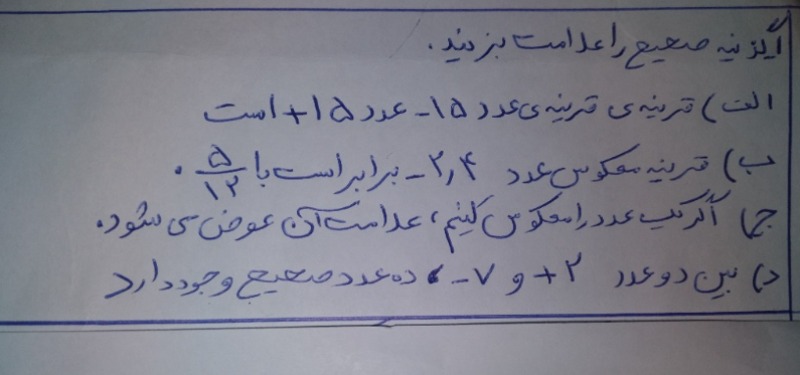 گزینه صحیح را علامت بزنید.
الف) قرینه‌ی قرینه‌ی عدد ۱۵- عدد ۱۵+ است
ب) قرینه معکوس عدد ۲٫۴- برابر است با ۵/۱۲.
ج) اگر یک عدد را معکوس کنیم، علامت آن عوض می شود.
د) بین دو عدد ۲+ و ۷- ده عدد صحیح وجود دارد